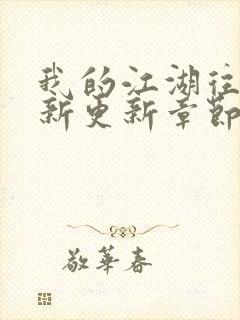 我的江湖往
新更新章节
敬華春